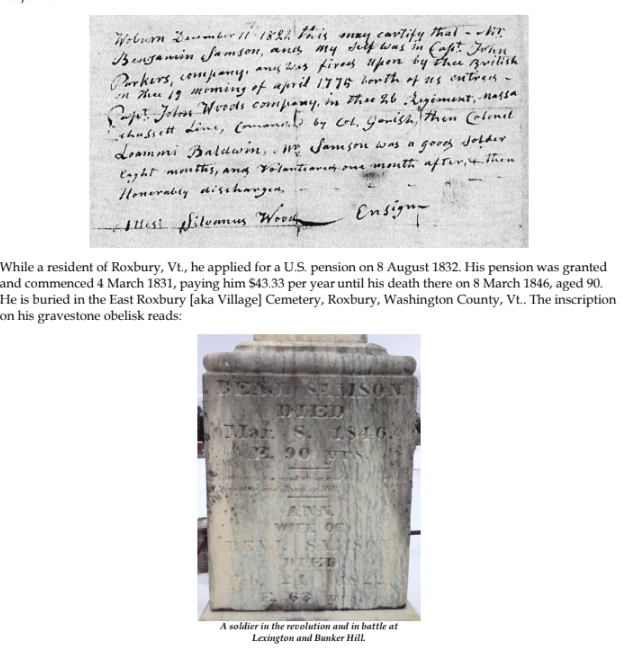 Woburn December 11 1824 this may cartify that - Mr.
Benjamin Samson, and my self was in Capt. John
Parkers, company, and was fired upon by thee British
on thee 19 morning of april 1775 both of us entred -
Capt. John Woods company, in thee 26 Regiment, massa
chussett Line, Comand by Col. Gerish, then Colonel
Loammi Baldwin, Mr Samson was a good Solder
Eight months, and volanteared one month after, & then
Honerably discharged,
Attest Silvanus Wood Ensign
While a resident of Roxbury, Vt., he applied for a U.S. pension on 8 August 1832. His pension was granted
and commenced 4 March 1831, paying him $43.33 per year until his death there on 8 March 1846, aged 90.
He is buried in the East Roxbury [aka Village] Cemetery, Roxbury, Washington County, Vt.. The inscription
on his gravestone obelisk reads:
BENJ. SAMSON
DIED
Mar. 8, 1846.
Æ. 90 yrs.
ANN
WIFE OF
BENJ. SAMSON
DIED
24
Æ. 63
A soldier in the revolution and in battle at
Lexington and Bunker Hill.